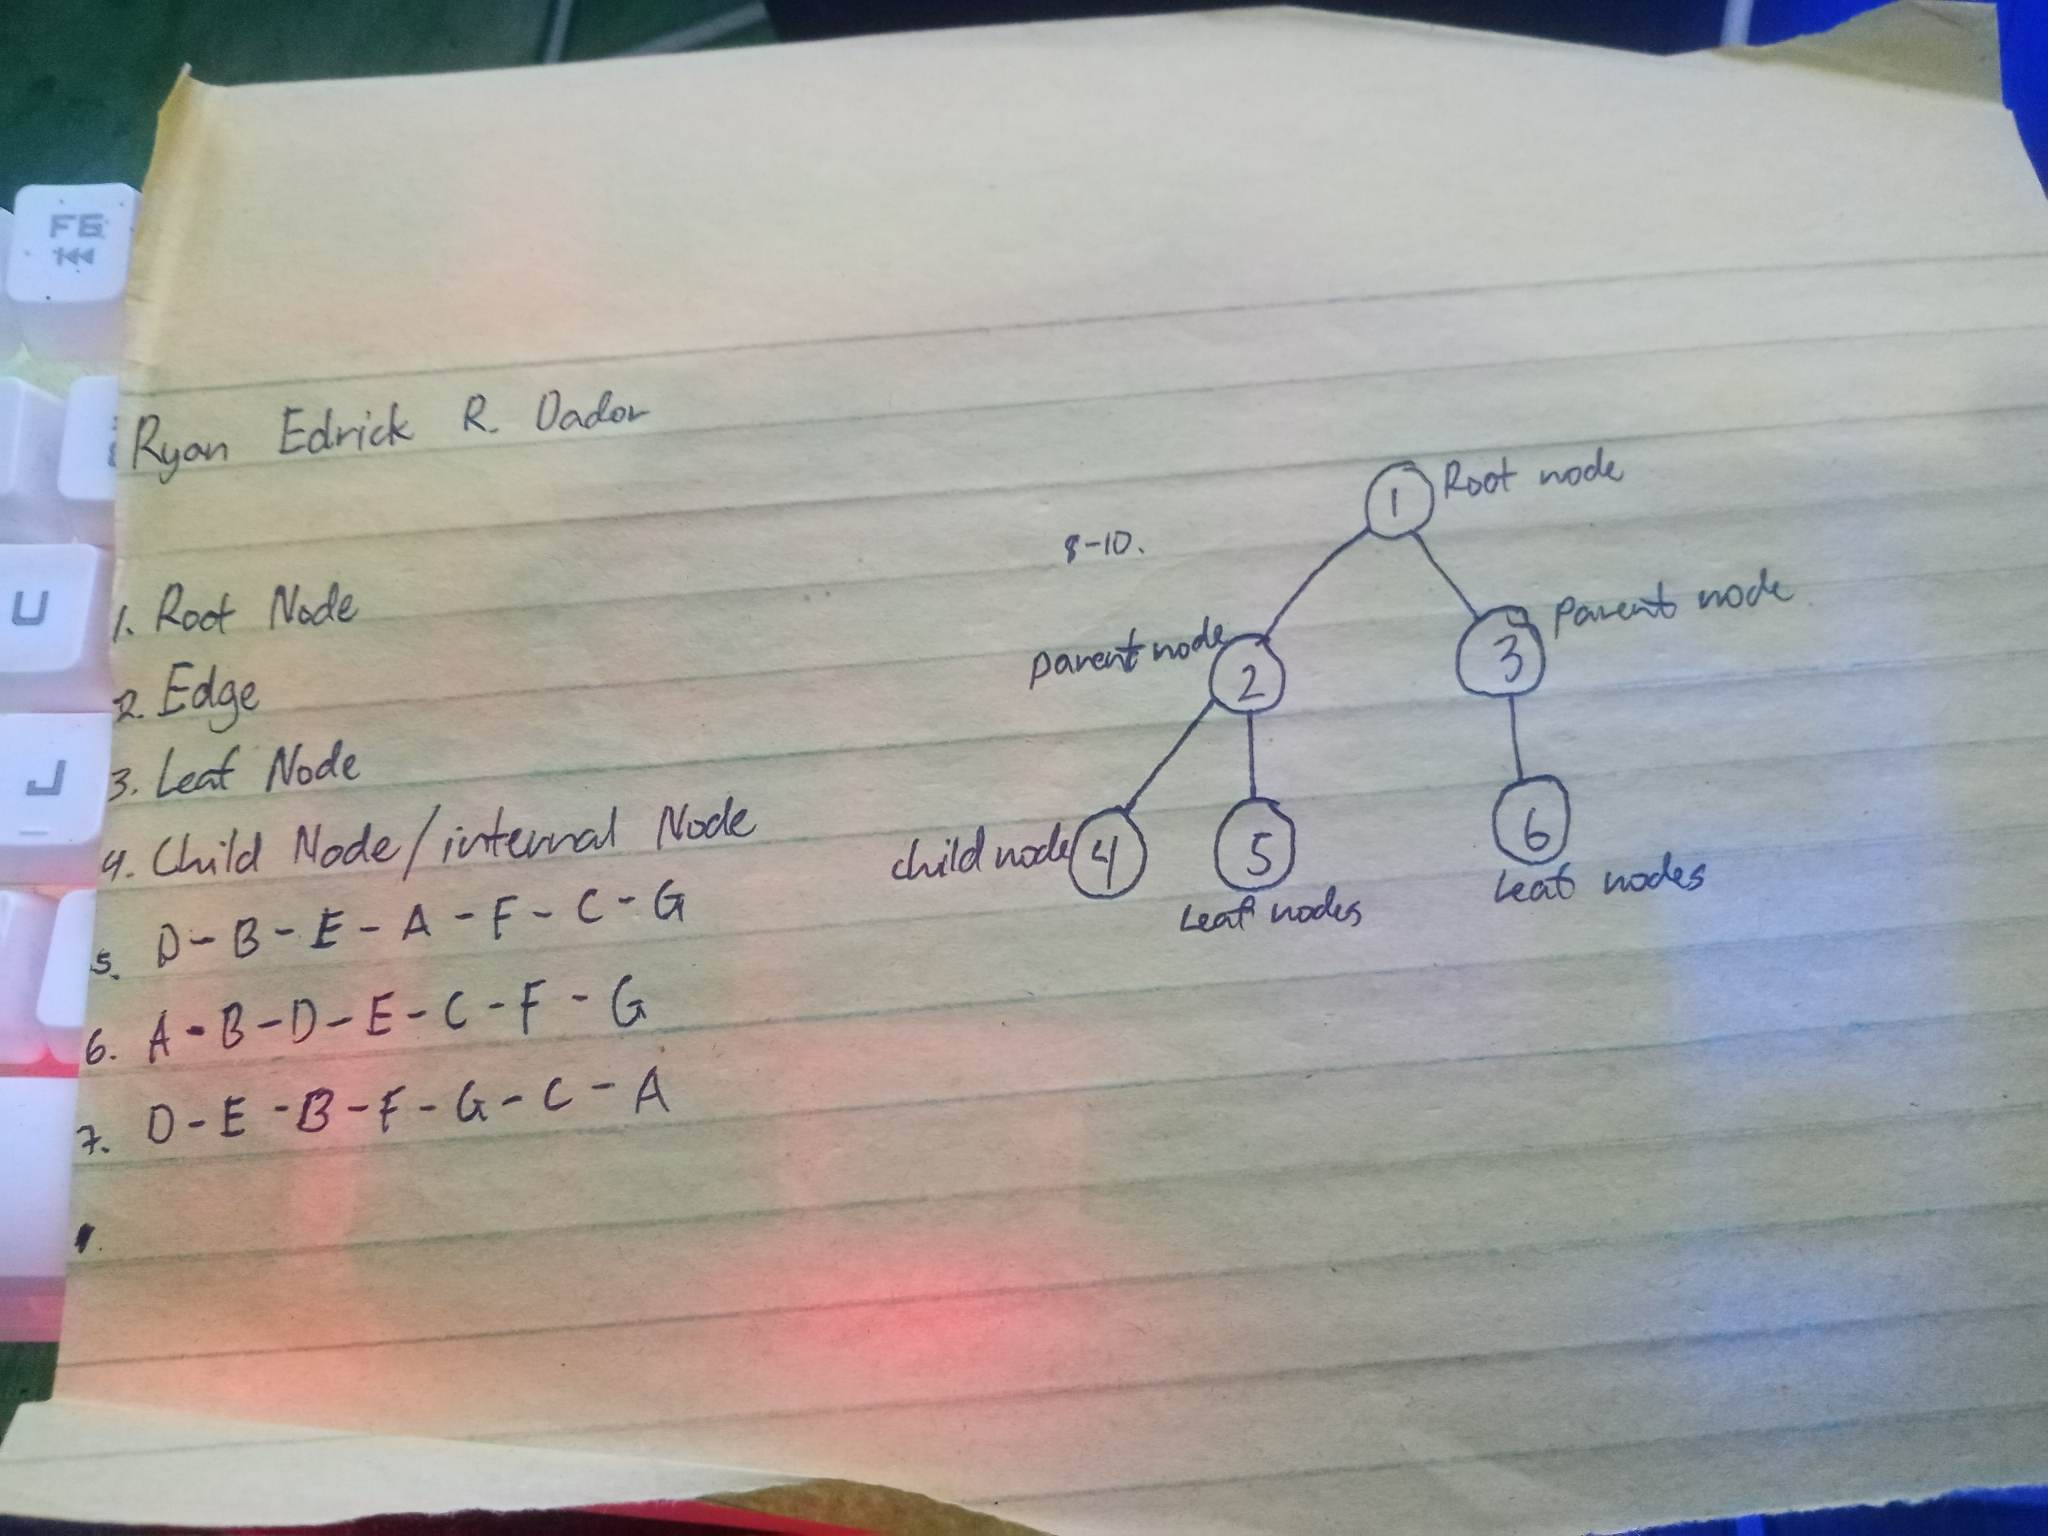 F6
U
J
Ryan Edrick R. Dador
1. Root Node
2. Edge
3. Leaf Node
4. Child Node/internal Node
5. D-B-E-A-F-C-G
6. A-B-D-E-C-F-G
7. D-E-B-F-G-C-A
8-10.
1 Root node
parent node 2
3 parent node
child node 4
5
6
Leaf nodes
Leaf nodes